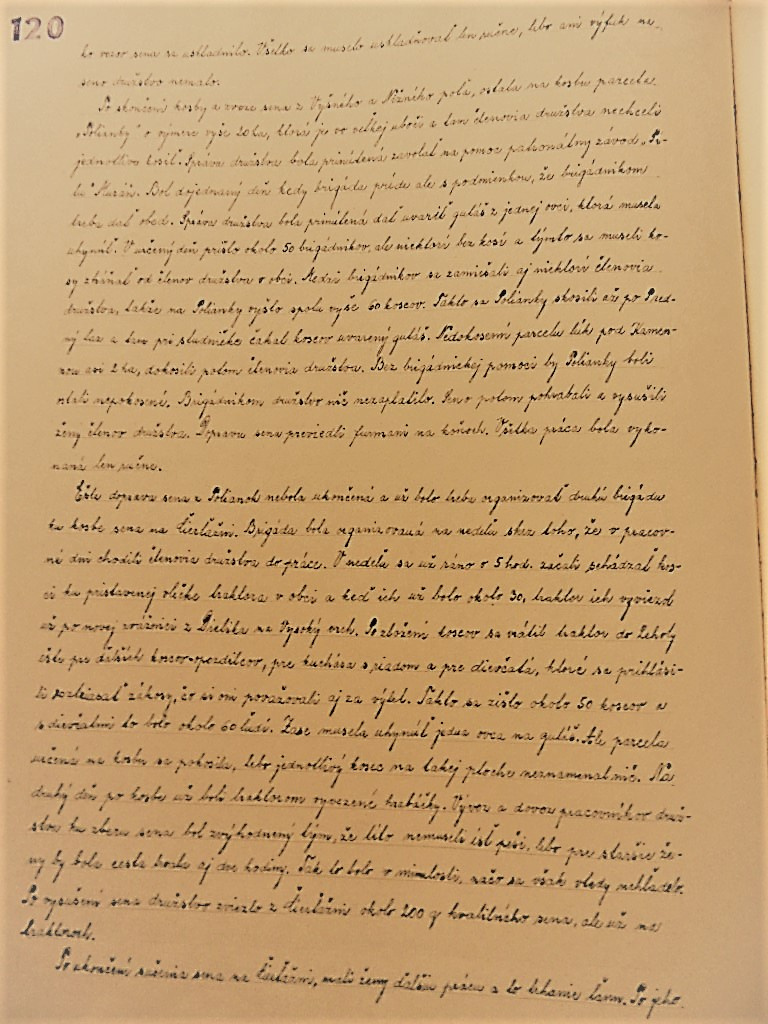 120
ko vozov sena sa uskladnilo. Všetko sa muselo uskladňovať len ručne, lebo ani výfuk na
seno družstvo nemalo.
Po skončení kosby a zvozu sena z Vyšného a Nižního pola, ostala na kosbu parcela
„Polianky" o výmere vyše 20 ha, ktorá je vo veľkej úbočí a tam členovia družstva nechceli
jednotlivo kosiť. Správa družstva bola prinútená zavolať na pomoc patronátny závod „Pí-
lu" Muráň. Bol dojednaný deň kedy brigáda príde ale s podmienkou, že brigádnikom
treba dať obed. Správa družstva bola prinútená dať uvariť guláš z jednej ovci, ktorá musela
uhynúť. V určený deň prišlo okolo 50 brigádnikov, ale niektorí bez kosí a týmto sa museli ko-
sy zháňať od členov družstva v obci. Medzi brigádnikov sa zamiešali aj niektorí členovia
družstva, takže na Polianky vyšlo spolu vyše 60 koscov. Takto sa Polianky skosili až po Pred-
ný laz a tam pri studničke čakal koscov uvarený guláš. Nedokosenú parcelu lúk pod Kamen-
nou asi 2 ha, dokosili potom členovia družstva. Bez brigádnickej pomoci by Polianky boli
ostali nepokosené. Brigádnikom družstvo nič nezaplatilo. Seno potom pohrabali a vysušili
ženy členov družstva. Dopravu sena previedli furmani na koňoch. Všetka práca bola vyko-
naná len ručne.
Ešte doprava sena z Polianok nebola ukončená a už bolo treba organizovať druhú brigádu
ku kosbe sena na Čierťažini. Brigáda bola organizovaná na nedeľu skrz toho, že v pracov-
né dni chodili členovia družstva do práce. V nedeľu sa už ráno o 5 hod. začali schádzať kos-
ci ku pristavenej vlečke traktora v obci a keď ich už bolo okolo 30, traktor ich vyviezol
už po novej zvážnici z Dielika na Vysoký vrch. Po zložení koscov sa vrátil traktor do Lehoty
ešte pre ďalších koscov-opozdilcov, pre kuchára s riadom a pre dievčatá, ktoré sa prihlási-
li rozhadzať zákosy, čo si oni považovali aj za výlet. Takto sa zišlo okolo 50 koscov a
s dievčatmi to bolo okolo 60 ľudí. Zase musela uhynúť jedna ovca na guláš. Ale parcela
určená na kosbu sa pokosila, lebo jednotlivý kosec na takej ploche neznamenal nič. Na
druhý deň po kosbe už boli traktorom vyvezené hrabáčky. Vývoz a dovoz pracovníkov druž-
stva ku zberu sena bol zvýhodnený tým, že títo nemuseli ísť peši, lebo pre staršie že-
ny by bola cesta trvala aj dve hodiny. Tak to bolo v minulosti, načo sa však vtedy nehľadelo.
Po vysušení sena družstvo zviezlo z Čierťažini okolo 200 q kvalitného sena, ale už na
traktoroch.
Po ukončení sušenia sena na Čierťažini, mali ženy ďalšiu prácu a to trhanie ľanu. Po jeho